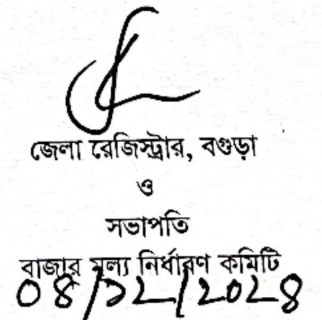 জেলা রেজিস্ট্রার, বগুড়া
ও
সভাপতি
বাজার মূল্য নির্ধারণ কমিটি
০৪/১২/২০২৪